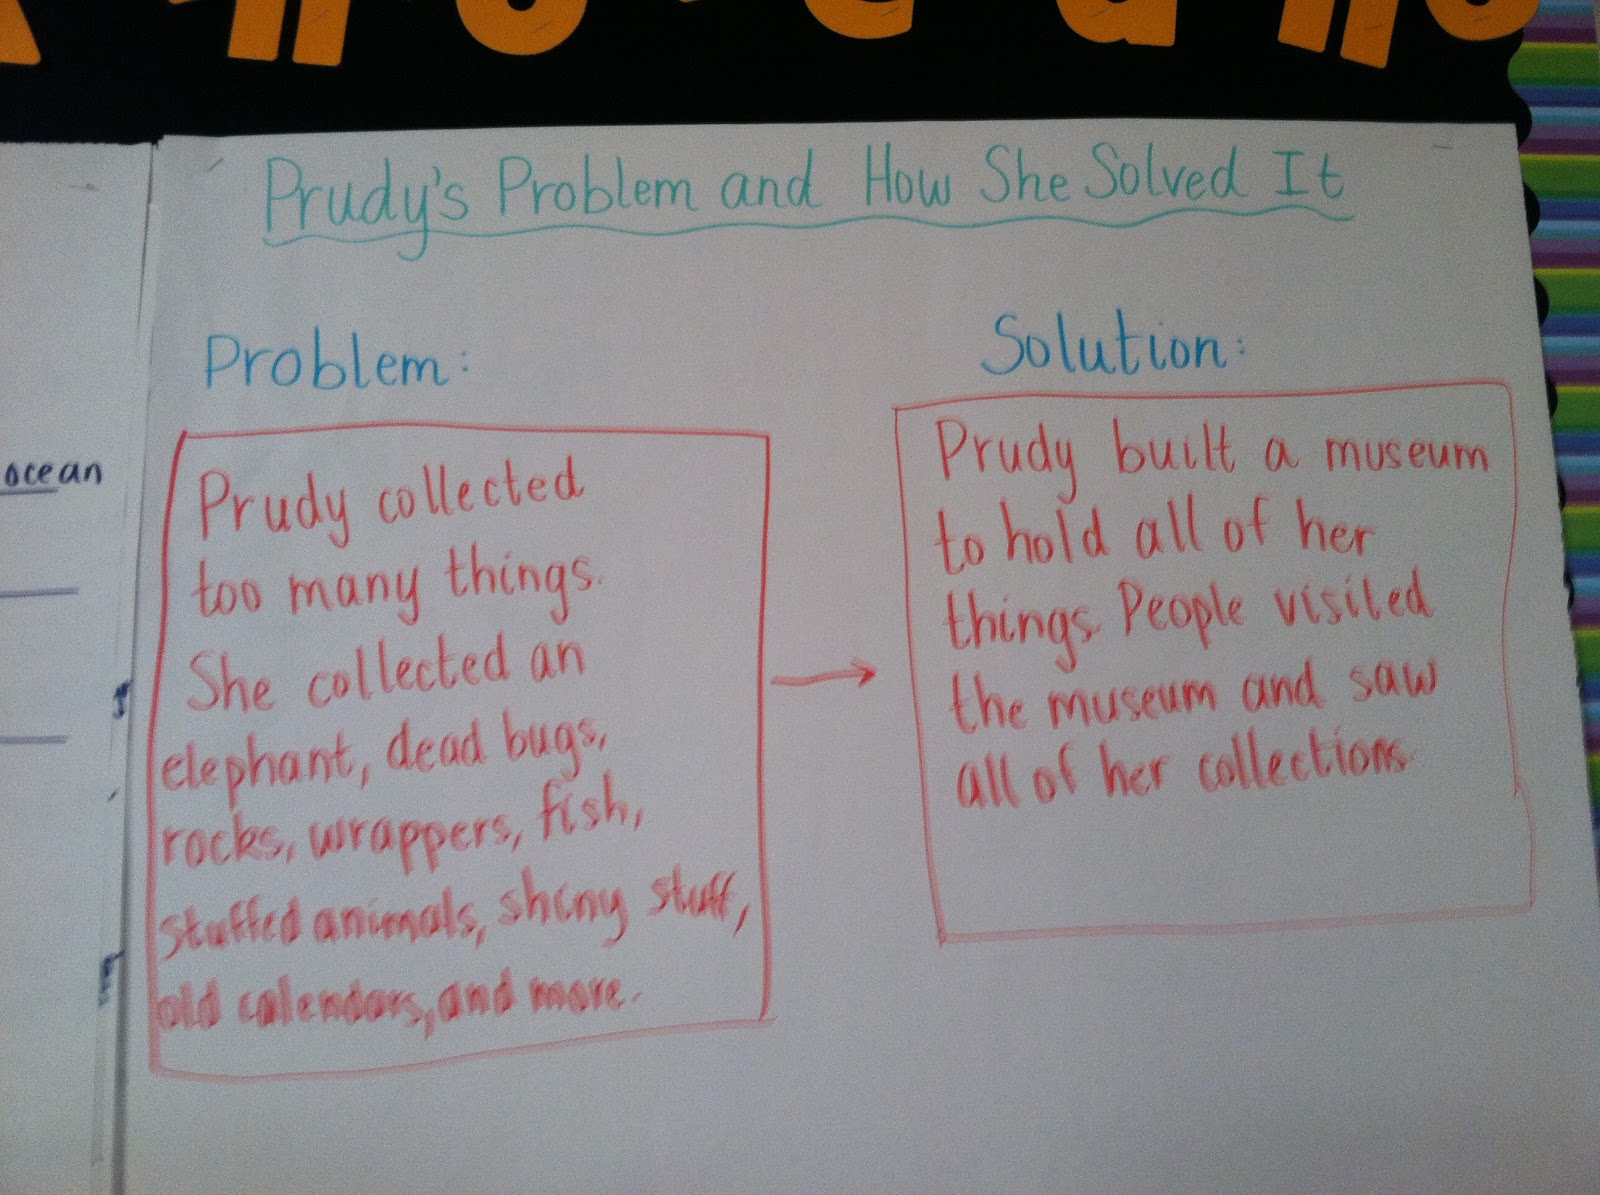 Prudy's Problem and How She Solved It
Problem:
Prudy collected
too many things.
She collected an
elephant, dead bugs,
rocks, wrappers, fish,
stuffed animals, shiny stuff,
old calendars, and more.
Solution:
Prudy built a museum
to hold all of her
things. People visited
the museum and saw
all of her collections.
ocean